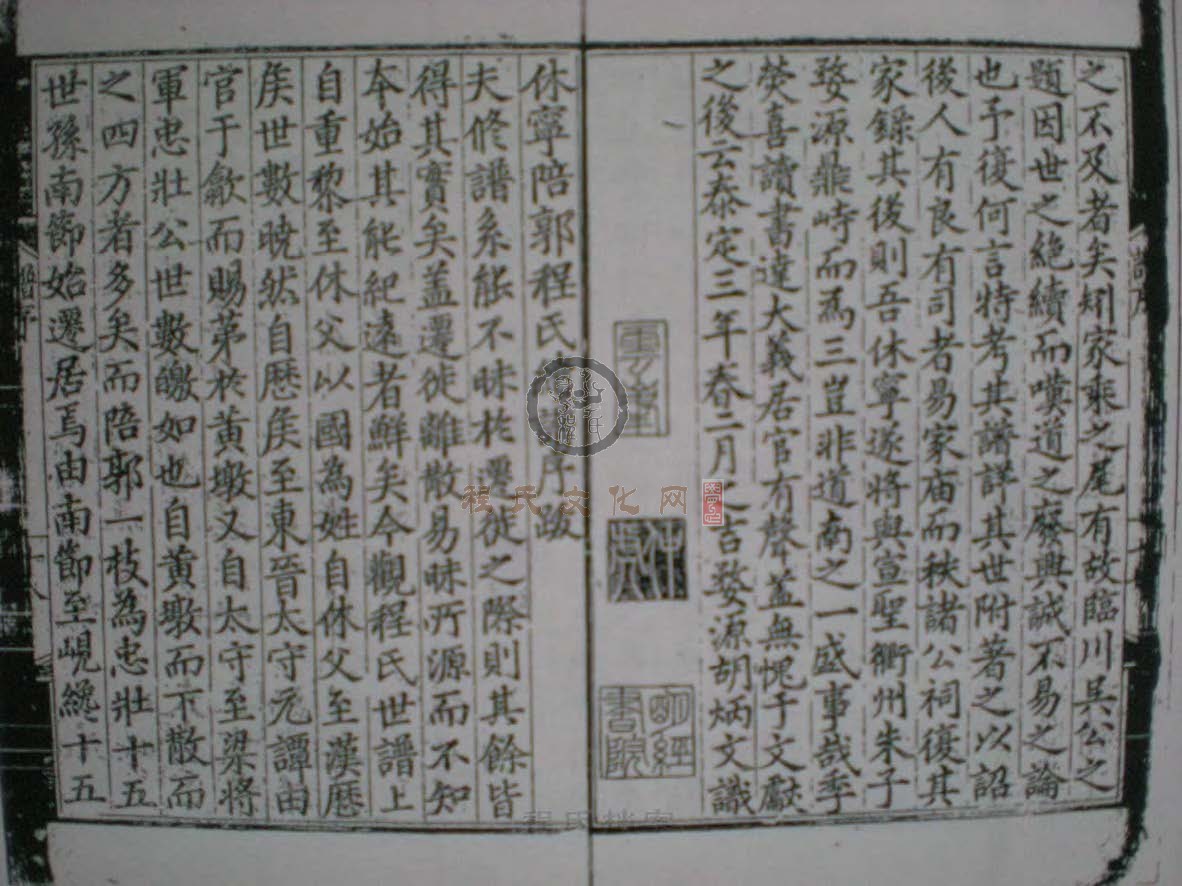 之不及者矣矧家乘之尾有故臨川吳公之
題因世之絶續而嘆道之廢興誠不易之論
也予復何言特考其譜詳其世附著之以詔
後人有良有司者易家庙而秩諸公祠復其
家錄其後則吾休寧遂將與宣聖衢州朱子
婺源鼎峙而爲三豈非道南之一盛事哉季
癸喜讀書達大義居官有聲盖無愧于文獻
之後云泰定三年春二月之吉婺源胡炳文識
明經書院
休寧陪郭程氏譜序跋
夫修譜系能不昧於遷徙之際則其餘皆
得其實矣盖遷徙離散易昧所源而不知
本始其能紀遠者鮮矣今觀程氏世譜上
自重黎至休父以國為姓自休父至漢歷
矦世數曉然自歷矦至東晉太守元譚由
官于歙而賜苐於黃墩又自太守至梁將
軍忠壯公世數皦如也自黃墩而下散而
之四方者多矣而陪郭一枝為忠壯十五
世孫南節始遷居焉由南節至峴纔十五
程氏文化网